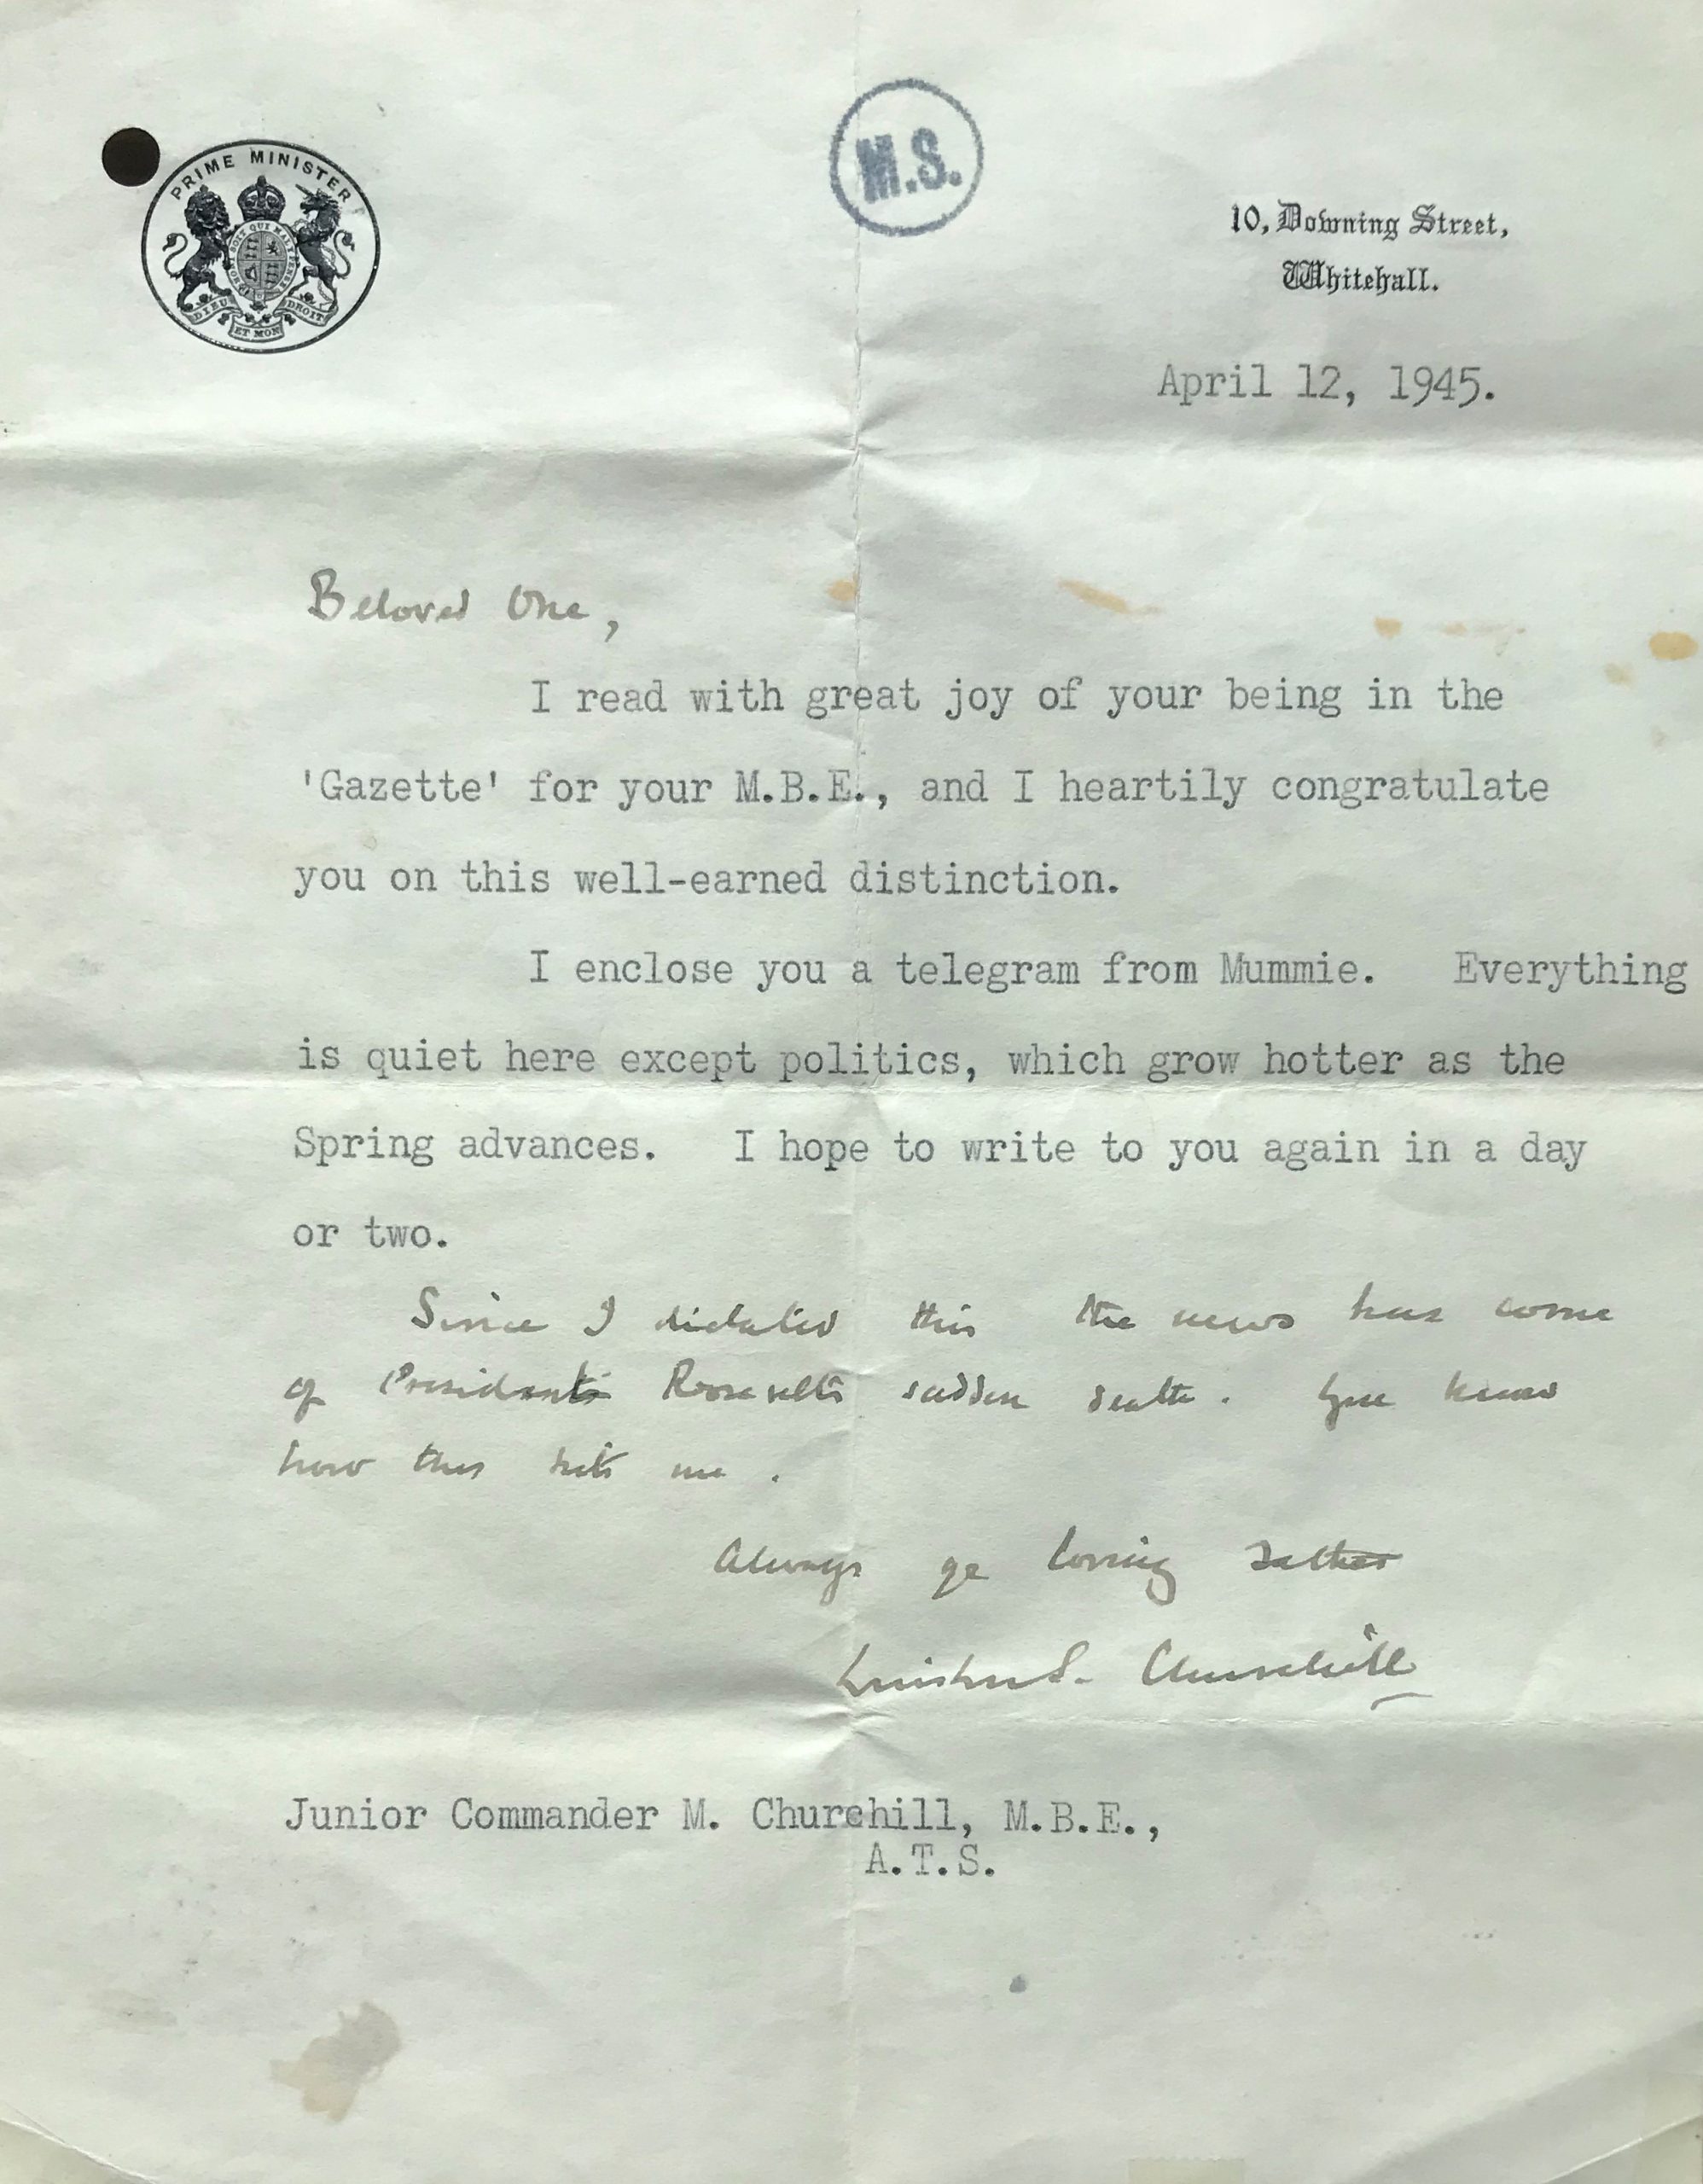 PRIME MINISTER
HONI SOIT QUI MAL Y PENSE
DIEU ET MON DROIT
M.S.
10, Downing Street,
Whitehall.
April 12, 1945.
Beloved One,
I read with great joy of your being in the
'Gazette' for your M.B.E., and I heartily congratulate
you on this well-earned distinction.
I enclose you a telegram from Mummie. Everything
is quiet here except politics, which grow hotter as the
Spring advances. I hope to write to you again in a day
or two.
Since I dictated this the news has come
of President Roosevelt's sudden death. You know
how this hits me.
Always yr loving Father
Winston S. Churchill
Junior Commander M. Churchill, M.B.E.,
A.T.S.